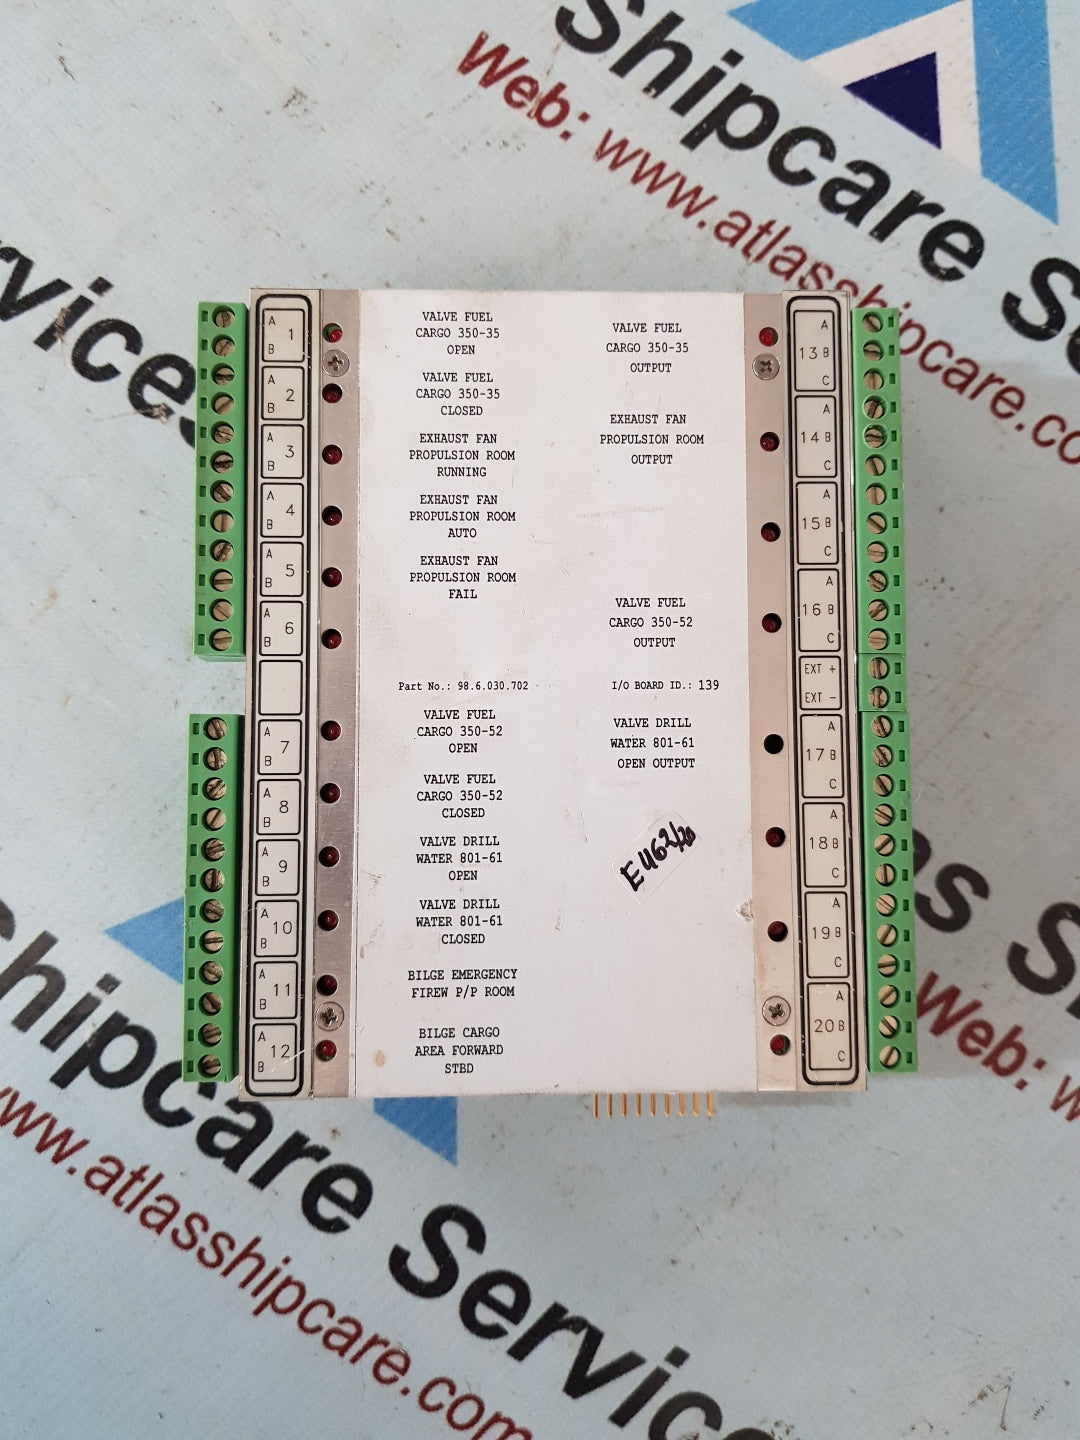 Shipcare Se
Web: www.atlasshipcare.co
rvices
A 1
B
A 2
B
A 3
B
A 4
B
A 5
B
A 6
B
A 7
B
A 8
B
A 9
B
A 10
B
A 11
B
A 12
B
VALVE FUEL
CARGO 350-35
OPEN
VALVE FUEL
CARGO 350-35
CLOSED
EXHAUST FAN
PROPULSION ROOM
RUNNING
EXHAUST FAN
PROPULSION ROOM
AUTO
EXHAUST FAN
PROPULSION ROOM
FAIL
Part No.: 98.6.030.702
VALVE FUEL
CARGO 350-52
OPEN
VALVE FUEL
CARGO 350-52
CLOSED
VALVE DRILL
WATER 801-61
OPEN
VALVE DRILL
WATER 801-61
CLOSED
BILGE EMERGENCY
FIREW P/P ROOM
BILGE CARGO
AREA FORWARD
STBD
VALVE FUEL
CARGO 350-35
OUTPUT
EXHAUST FAN
PROPULSION ROOM
OUTPUT
VALVE FUEL
CARGO 350-52
OUTPUT
I/O BOARD ID.: 139
VALVE DRILL
WATER 801-61
OPEN OUTPUT
EU62/20
A
13 B
C
A
14 B
C
A
15 B
C
A
16 B
C
EXT +
EXT -
A
17 B
C
A
18 B
C
A
19 B
C
A
20 B
C
as S
Web: w
hipcare Servic
ww.atlasshipcare.com